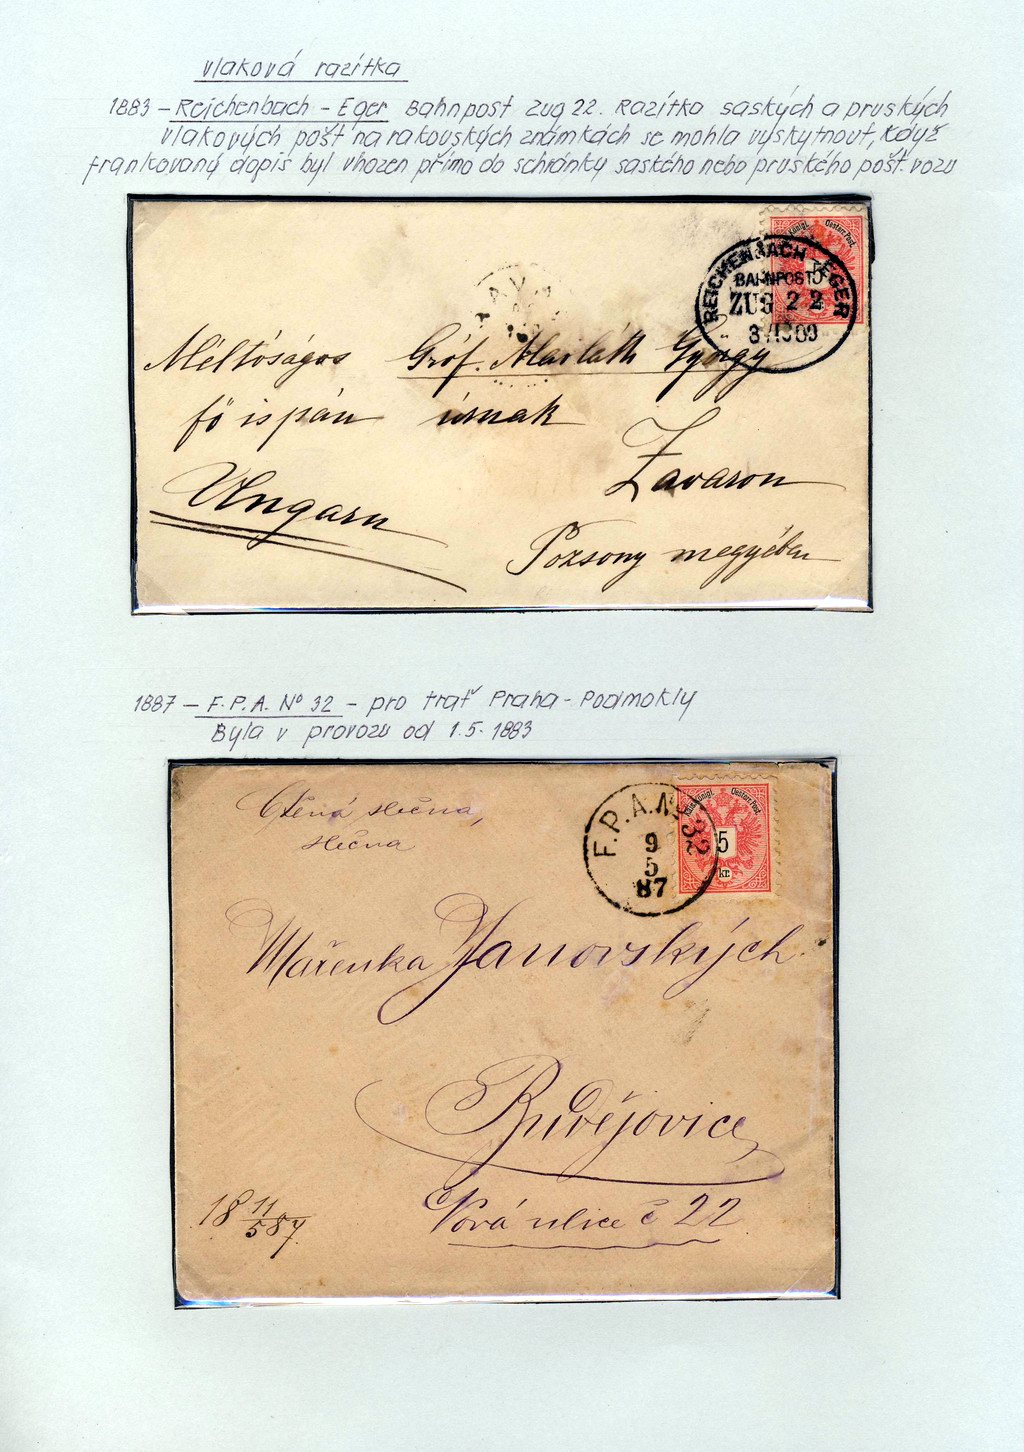 vlaková razítka
1883 - Reichenbach - Eger Bahnpost Zug 22. Razítka saských a pruských
vlakových pošt na rakouských známkách se mohla vyskytnout, když
frankovaný dopis byl vhozen přímo do schránky saského nebo pruského pošt. vozu
Oesterr. Post.
5
REICHENBACH - EGER
BAHNPOST
ZUG 22
Méltóságos Gróf. Mailáth György
fő ispán úrnak
Zavaron
Ungarn
Pozsony megyében
1887 - F.P.A. Nº 32 - pro trať Praha - Podmokly
Byla v provozu od 1.5.1883
Ctěná slečna,
slečna
F.P.A. Nº 32
9
5
87
Kais. Königl. Oesterr. Post.
5
kr.
Mařenka Janovských
Budějovice
Nová ulice č 22
18 11/5 87